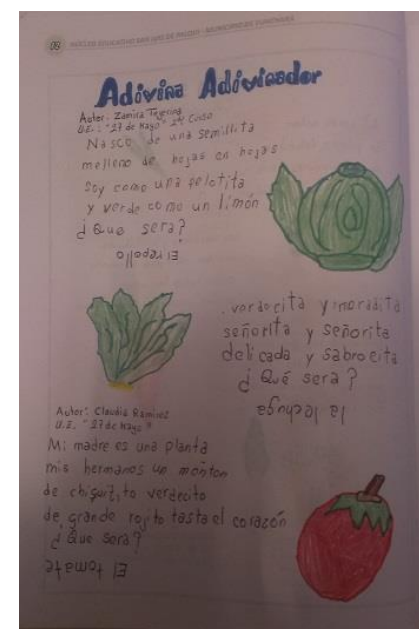 12 NÚCLEO EDUCATIVO SAN LUIS DE PALQUI - MUNICIPIO DE YUNCHARÁ
Adivina Adivinador
Autor: Zamira
U.E.: "27 de Mayo" 2do Curso
Nasco de una semillita
melleno de hojas en hojas
Soy como una pelotita
y verde como un limón
¿Que sera?
El repollo
verdecita y moradita
señorita y señorita
delicada y sabrocita
¿Qué sera?
la lechuga
Autor: Claudia Ramirez
U.E. "27 de Mayo"
Mi madre es una planta
mis hermanos un montón
de chiquitito verdecito
de grande rojito tasta el corazón
¿Que sera?
El tomate